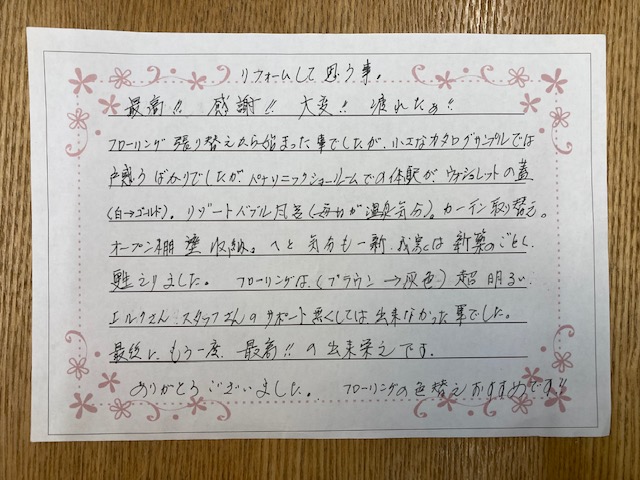 リフォームして思う事。
最高!! 感謝!! 大変!! 疲れたぁ!!
フローリング張り替えから始まった事でしたが、小さなカタログサンプルでは
戸惑うばかりでしたが、パナソニックショールームでの体験が、ウォシュレットの蓋
(白→ゴールド)。リゾートバブル風呂(毎日が温泉気分)。カーテン取り替え。
オープン棚 壁収納。へと 気分も一新 我家は 新築のごとく、
甦えりました。 フローリングは、(ブラウン→灰色)超 明るい、
エルクさん、スタッフさんのサポート無くしては、出来なかった事でした。
最後に、もう一度、最高!!の出来栄えです。
ありがとうございました。 フローリングの色替えおすすめです!!